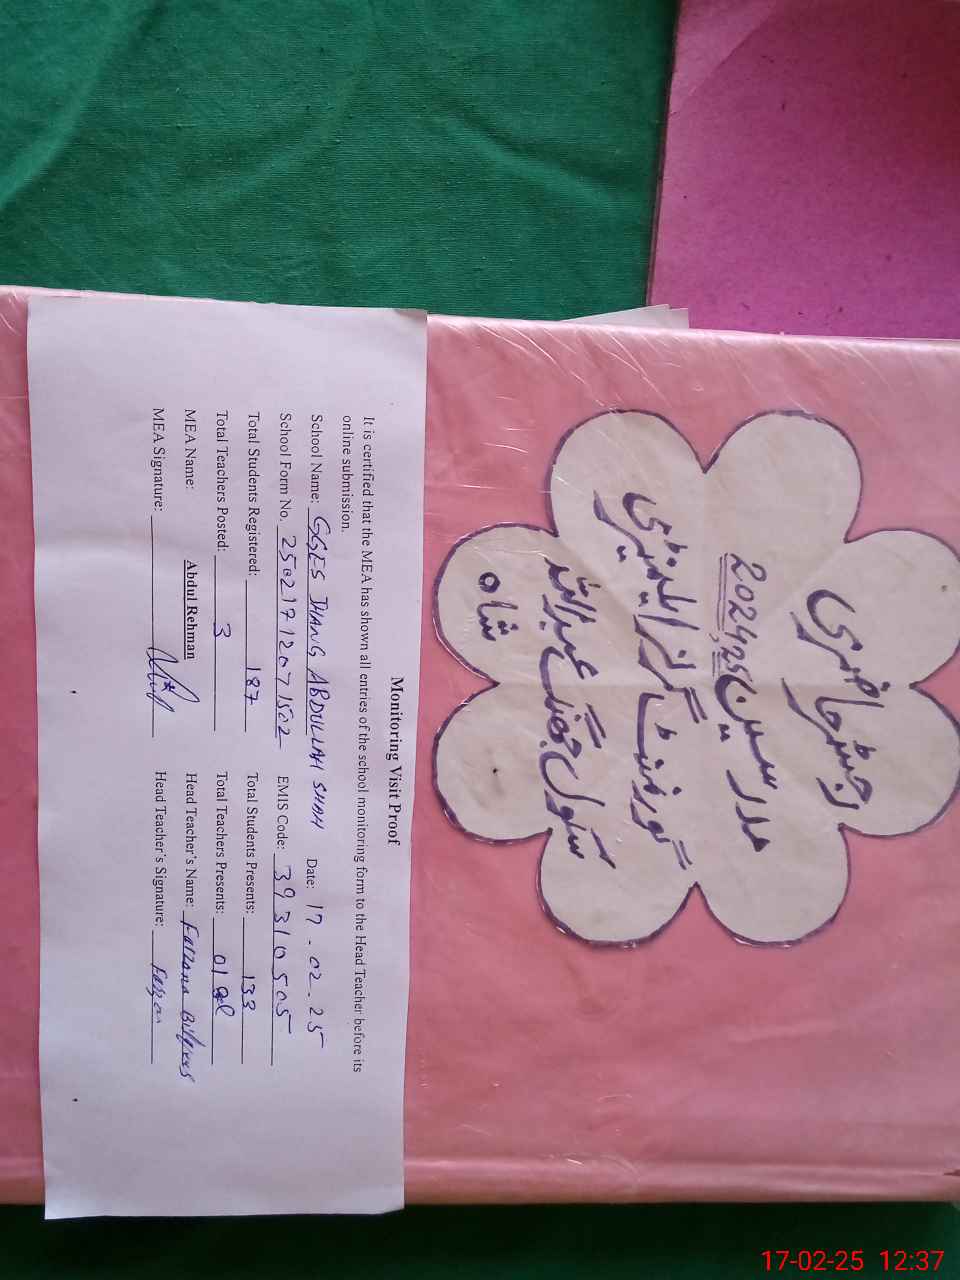 رجسٹر حاضری
مدرسین 2024,25
گورنمنٹ گرلز ایلیمنٹری
سکول جھنگ عبداللہ
شاہ
Monitoring Visit Proof
It is certified that the MEA has shown all entries of the school monitoring form to the Head Teacher before its
online submission.
School Name: GGES JHANG ABDULLAH SHAH Date: 17-02-25
School Form No. 25021712071502 EMIS Code: 39310505
Total Students Registered: 187 Total Students Presents: 133
Total Teachers Posted: 3 Total Teachers Presents: 01
MEA Name: Abdul Rehman Head Teacher's Name: Farzana Bilqees
MEA Signature: Head Teacher's Signature: Farzan
17-02-25 12:37